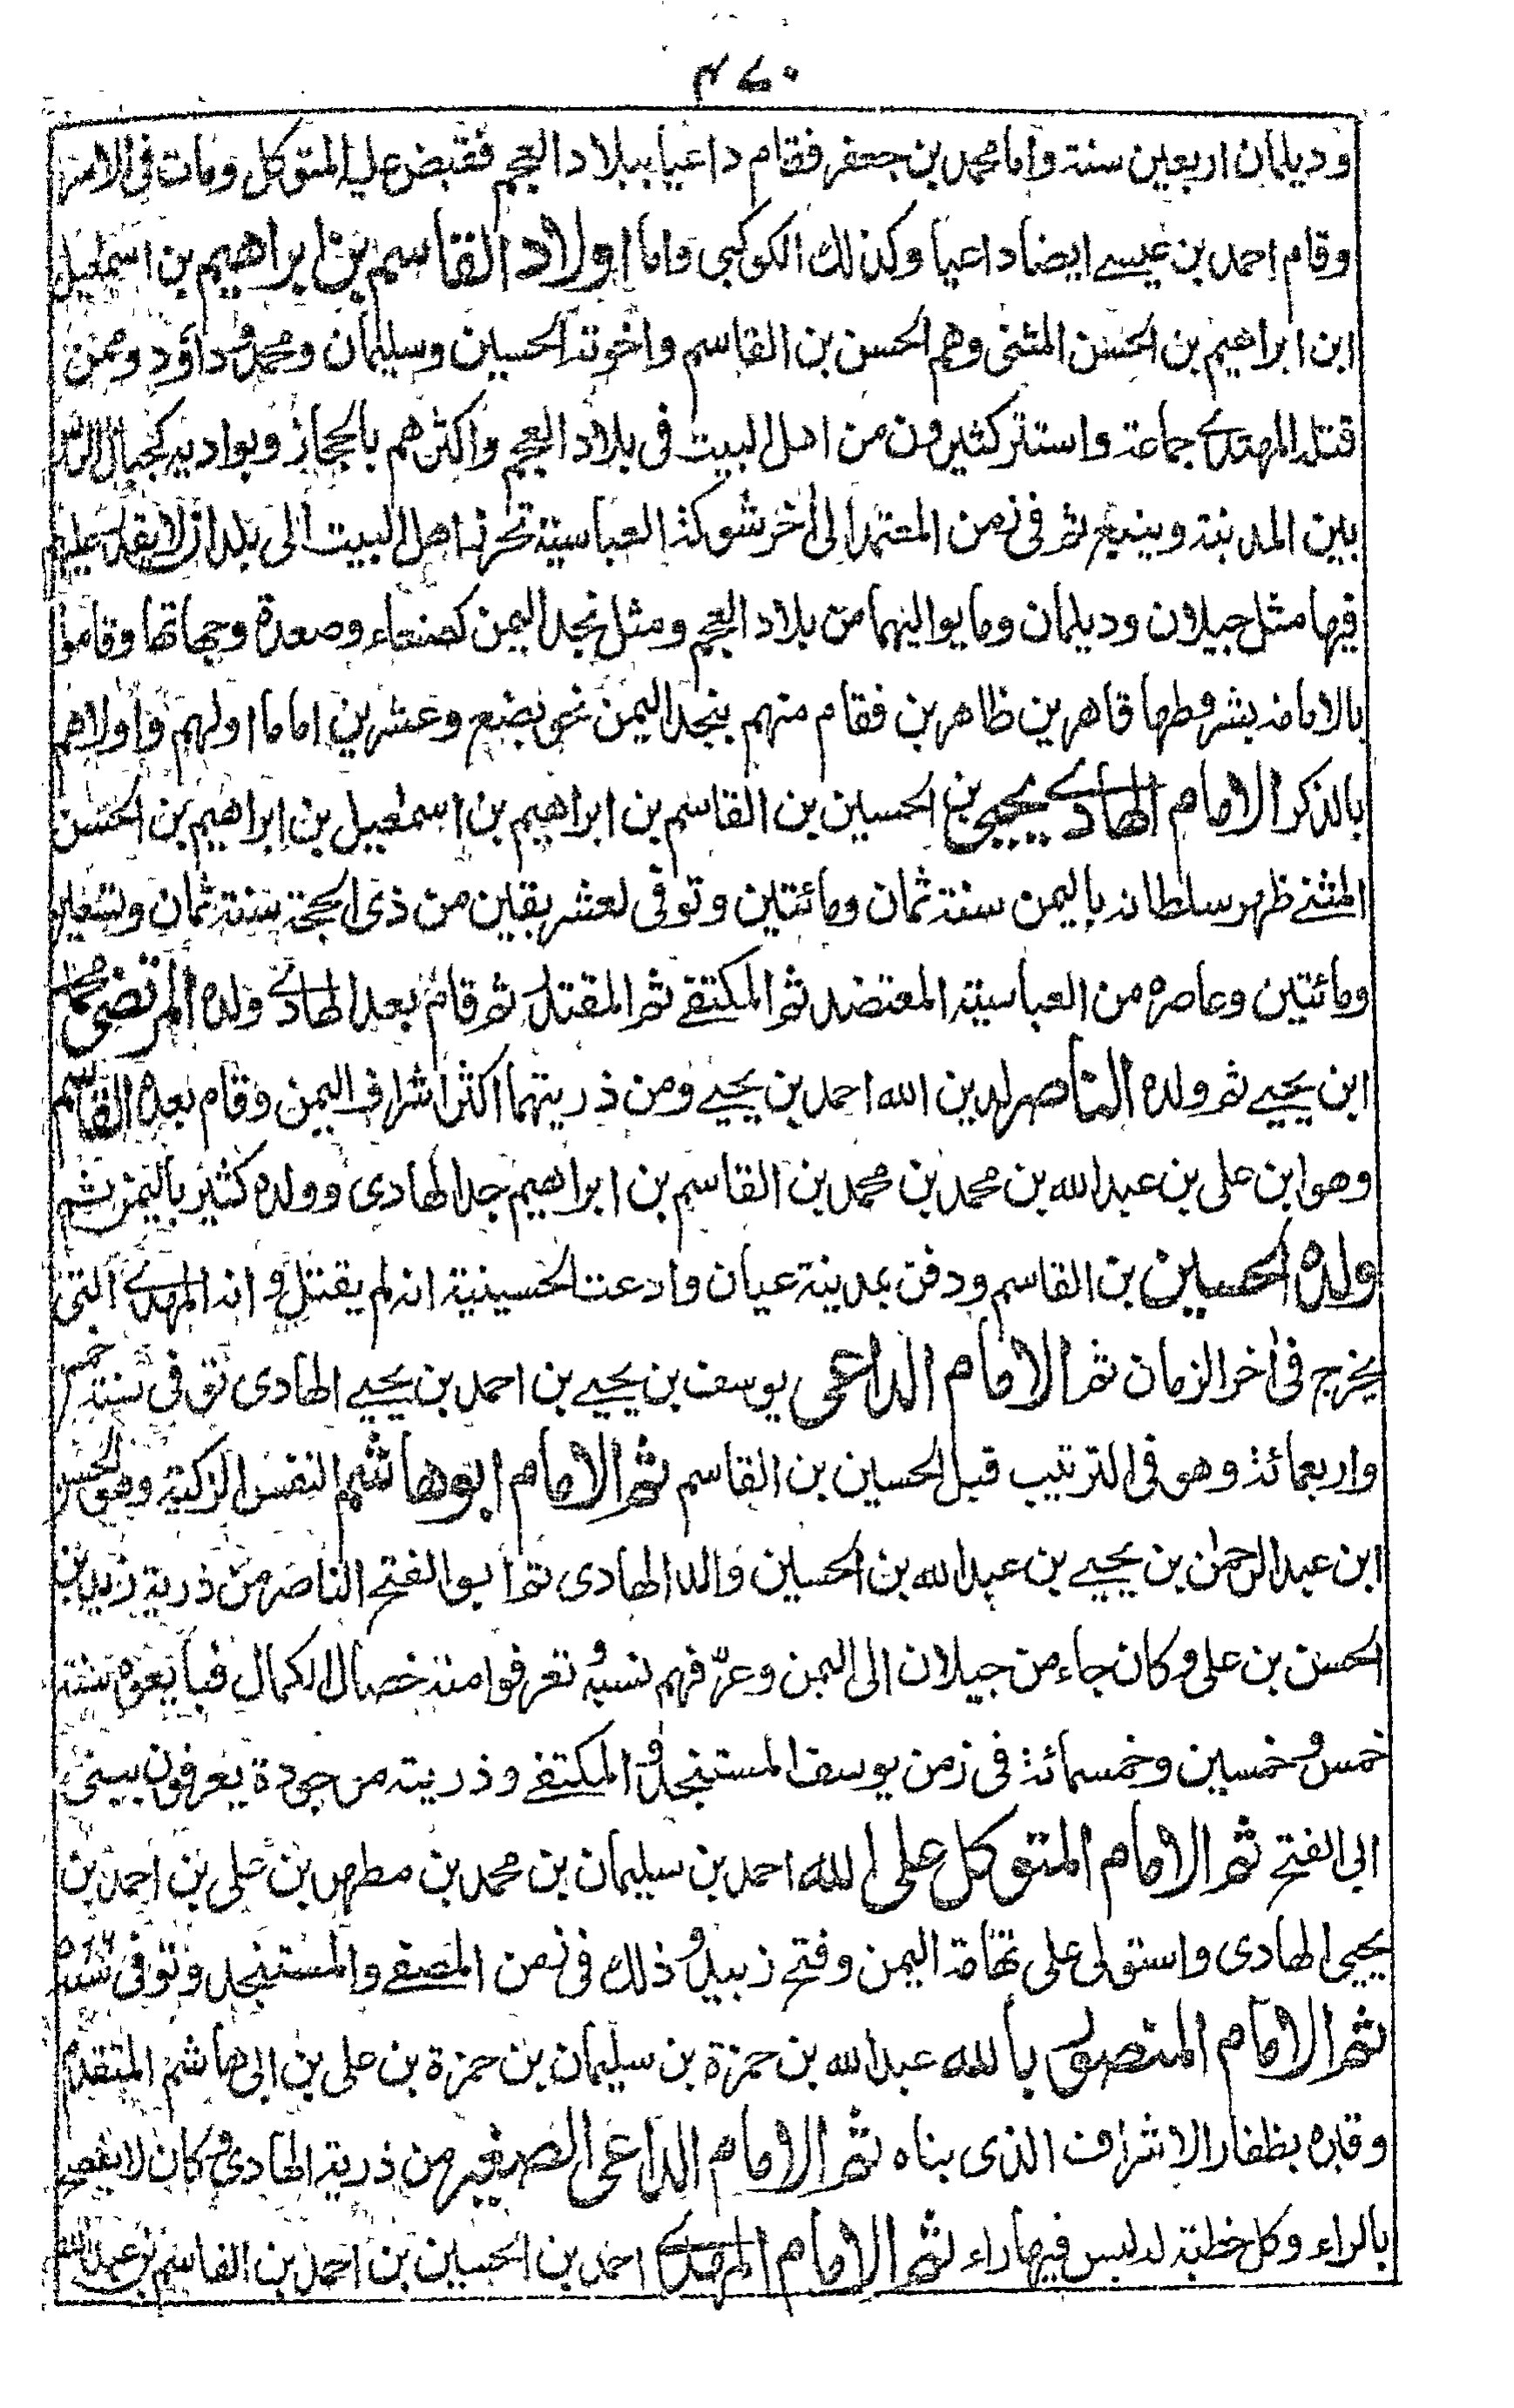 ٤٧٠
وديلمان اربعين سنة واما محمد بن جعفر فقام داعيا ببلاد العجم فقبض عليه المتوكل ومات فى الاسر
وقام احمد بن عيسے ايضا داعيا وكذلك الكوكبى واما اولاد القاسم بن ابراهيم بن اسمعيل
ابن ابراهيم بن الحسن المثنى وهم الحسن بن القاسم واخوته الحسين وسليمان ومحمد وداؤد وممن
قتله المهتدے جماعة واستتر كثيرون من اهل البيت فى بلاد العجم واكثرهم بالحجاز وبواديه كجبال الرس
بين المدينة وينبع ثم فى زمن المعتمد الى اٰخر شوكة العباسية تحرز اهل البيت الى بلدان لا يقدر عليهم
فيها مثل جيلان وديلمان وما يواليهما من بلاد العجم ومثل نجد اليمن كصنعاء وصعدة وجهاتها وقاموا
بالامامة بشروطها قاهرين ظاهرين فقام منهم بنجد اليمن نحو بضع وعشرين اماما اولهم واولاهم
بالذكر الامام الهادے يحيى بن الحسين بن القاسم بن ابراهيم بن اسمعيل بن ابراهيم بن الحسن
المثنے ظهر سلطانه باليمن سنة ثمان ومائتين وتوفى لعشر بقين من ذى الحجة سنة ثمان وتسعين
ومائتين وعاصره من العباسية المعتضد ثم المكتفے ثم المقتدر ثم قام بعد الهادے ولده المرتضى محمد
ابن يحيے ثم ولده الناصر لدين الله احمد بن يحيے ومن ذريتهما اكثر اشراف اليمن وقام بعده القاسم
وهو ابن على بن عبد الله بن محمد بن محمد بن القاسم بن ابراهيم جد الهادى وولده كثير باليمن ثم
ولده الحسين بن القاسم ودفن بمدينة عيان وادعت الحسينية انه لم يقتل و انه المهدے التى
يخرج فى اٰخر الزمان ثم الامام الداعى يوسف بن يحيے بن احمد بن يحيے الهادى توفى سنة خمس
واربعمائة وهو فى الترتيب قبل الحسين بن القاسم ثم الامام ابو هاشم النفس الزكية وهو الحسن
ابن عبد الرحمٰن بن يحيے بن عبد الله بن الحسين والد الهادى ثم ابو الفتح الناصر من ذرية زيد بن
الحسن بن على وكان جاء من جيلان الى اليمن وعرّفهم نسبه و تعرفوا منه خصال الكمال فبايعوه سنة
خمس وخمسين وخمسمائة فى زمن يوسف المستنجد و المكتفے وذريته من جودة يعرفون ببنى
ابى الفتح ثم الامام المتوكل على الله احمد بن سليمان بن محمد بن مطهر بن على بن احمد بن
يحيى الهادى واستولى على تهامة اليمن وفتح زبيد و ذلك فى زمن المصفے والمستنجد وتوفى سنة
ثم الامام المنصور بالله عبد الله بن حمزة بن سليمان بن حمزة بن على بن ابى هاشم المتقدم
وقبره بظفار الاشراف الذى بناه ثم الامام الداعى الصغير من ذرية الهادى وكان لا يفصح
بالراء وكل خطبة له ليس فيها راء ثم الامام المهدے احمد بن الحسين بن احمد بن القاسم بن عبد الله